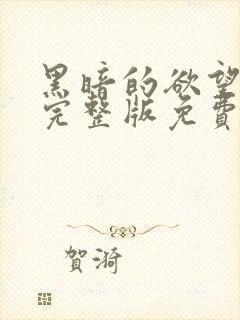 黑暗的欲望
完整版免費
賀漪